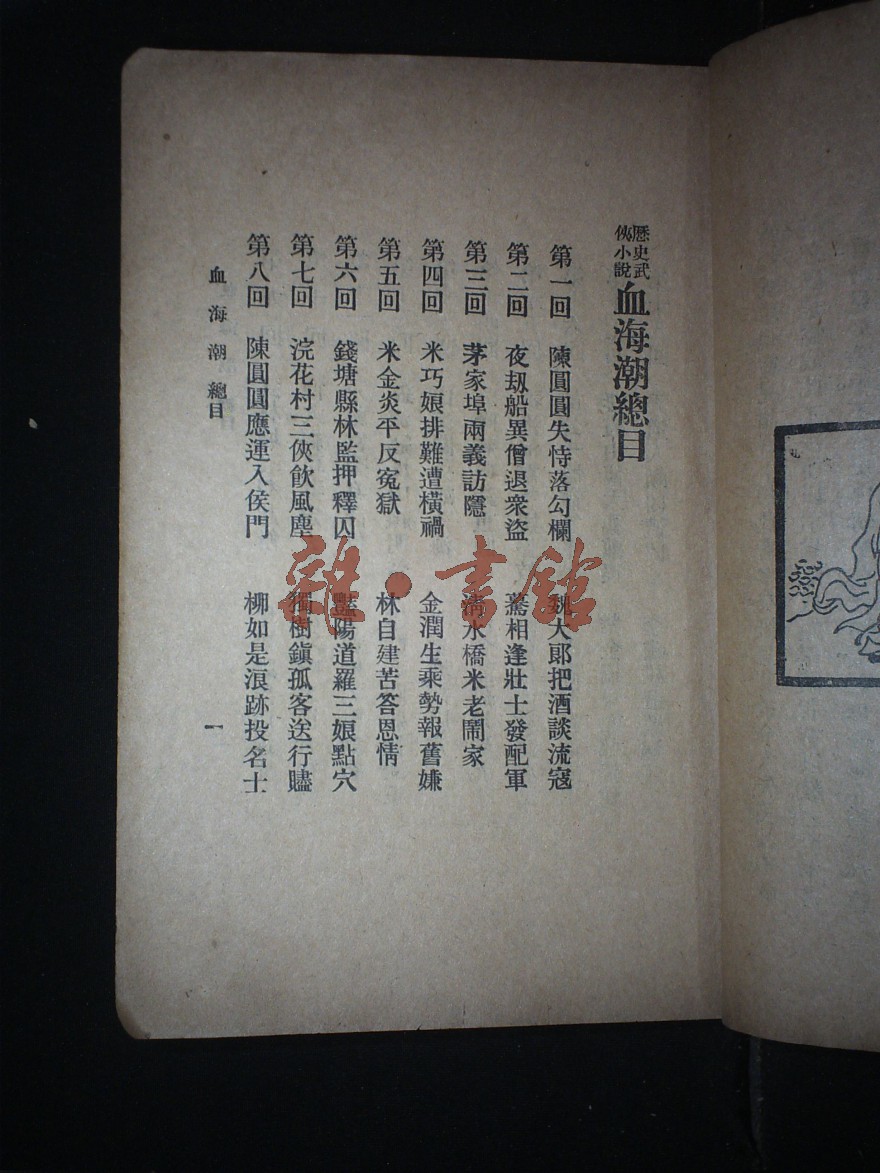 歷史武俠小說 血海潮總目
第一回 陳圓圓失恃落勾欄 魏大郎把酒談流寇
第二回 夜刧船異僧退衆盜 驀相逢壯士發配軍
第三回 茅家埠兩義訪隱 清水橋米老鬧家
第四回 米巧娘排難遭橫禍 金潤生乘勢報舊嫌
第五回 米金炎平反冤獄 林自建苦答恩情
第六回 錢塘縣林監押釋囚 豔陽道羅三娘點穴
第七回 浣花村三俠飲風塵 獨樹鎭孤客送行贐
第八回 陳圓圓應運入侯門 柳如是浪跡投名士
血海潮 總目 一
雜·書館